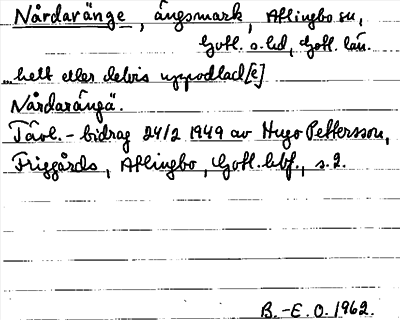 Nårdaränge, ängsmark, Atlingbo sn,
Gotl. s. hd, Gotl. län.
...helt eller delvis uppodlad[e]
Nårdarängä.
Tävl.-bidrag 24/2 1949 av Hugo Pettersson,
Friggårds, Atlingbo, Gotl. hbf., s. 2.
B.-E. O. 1962.